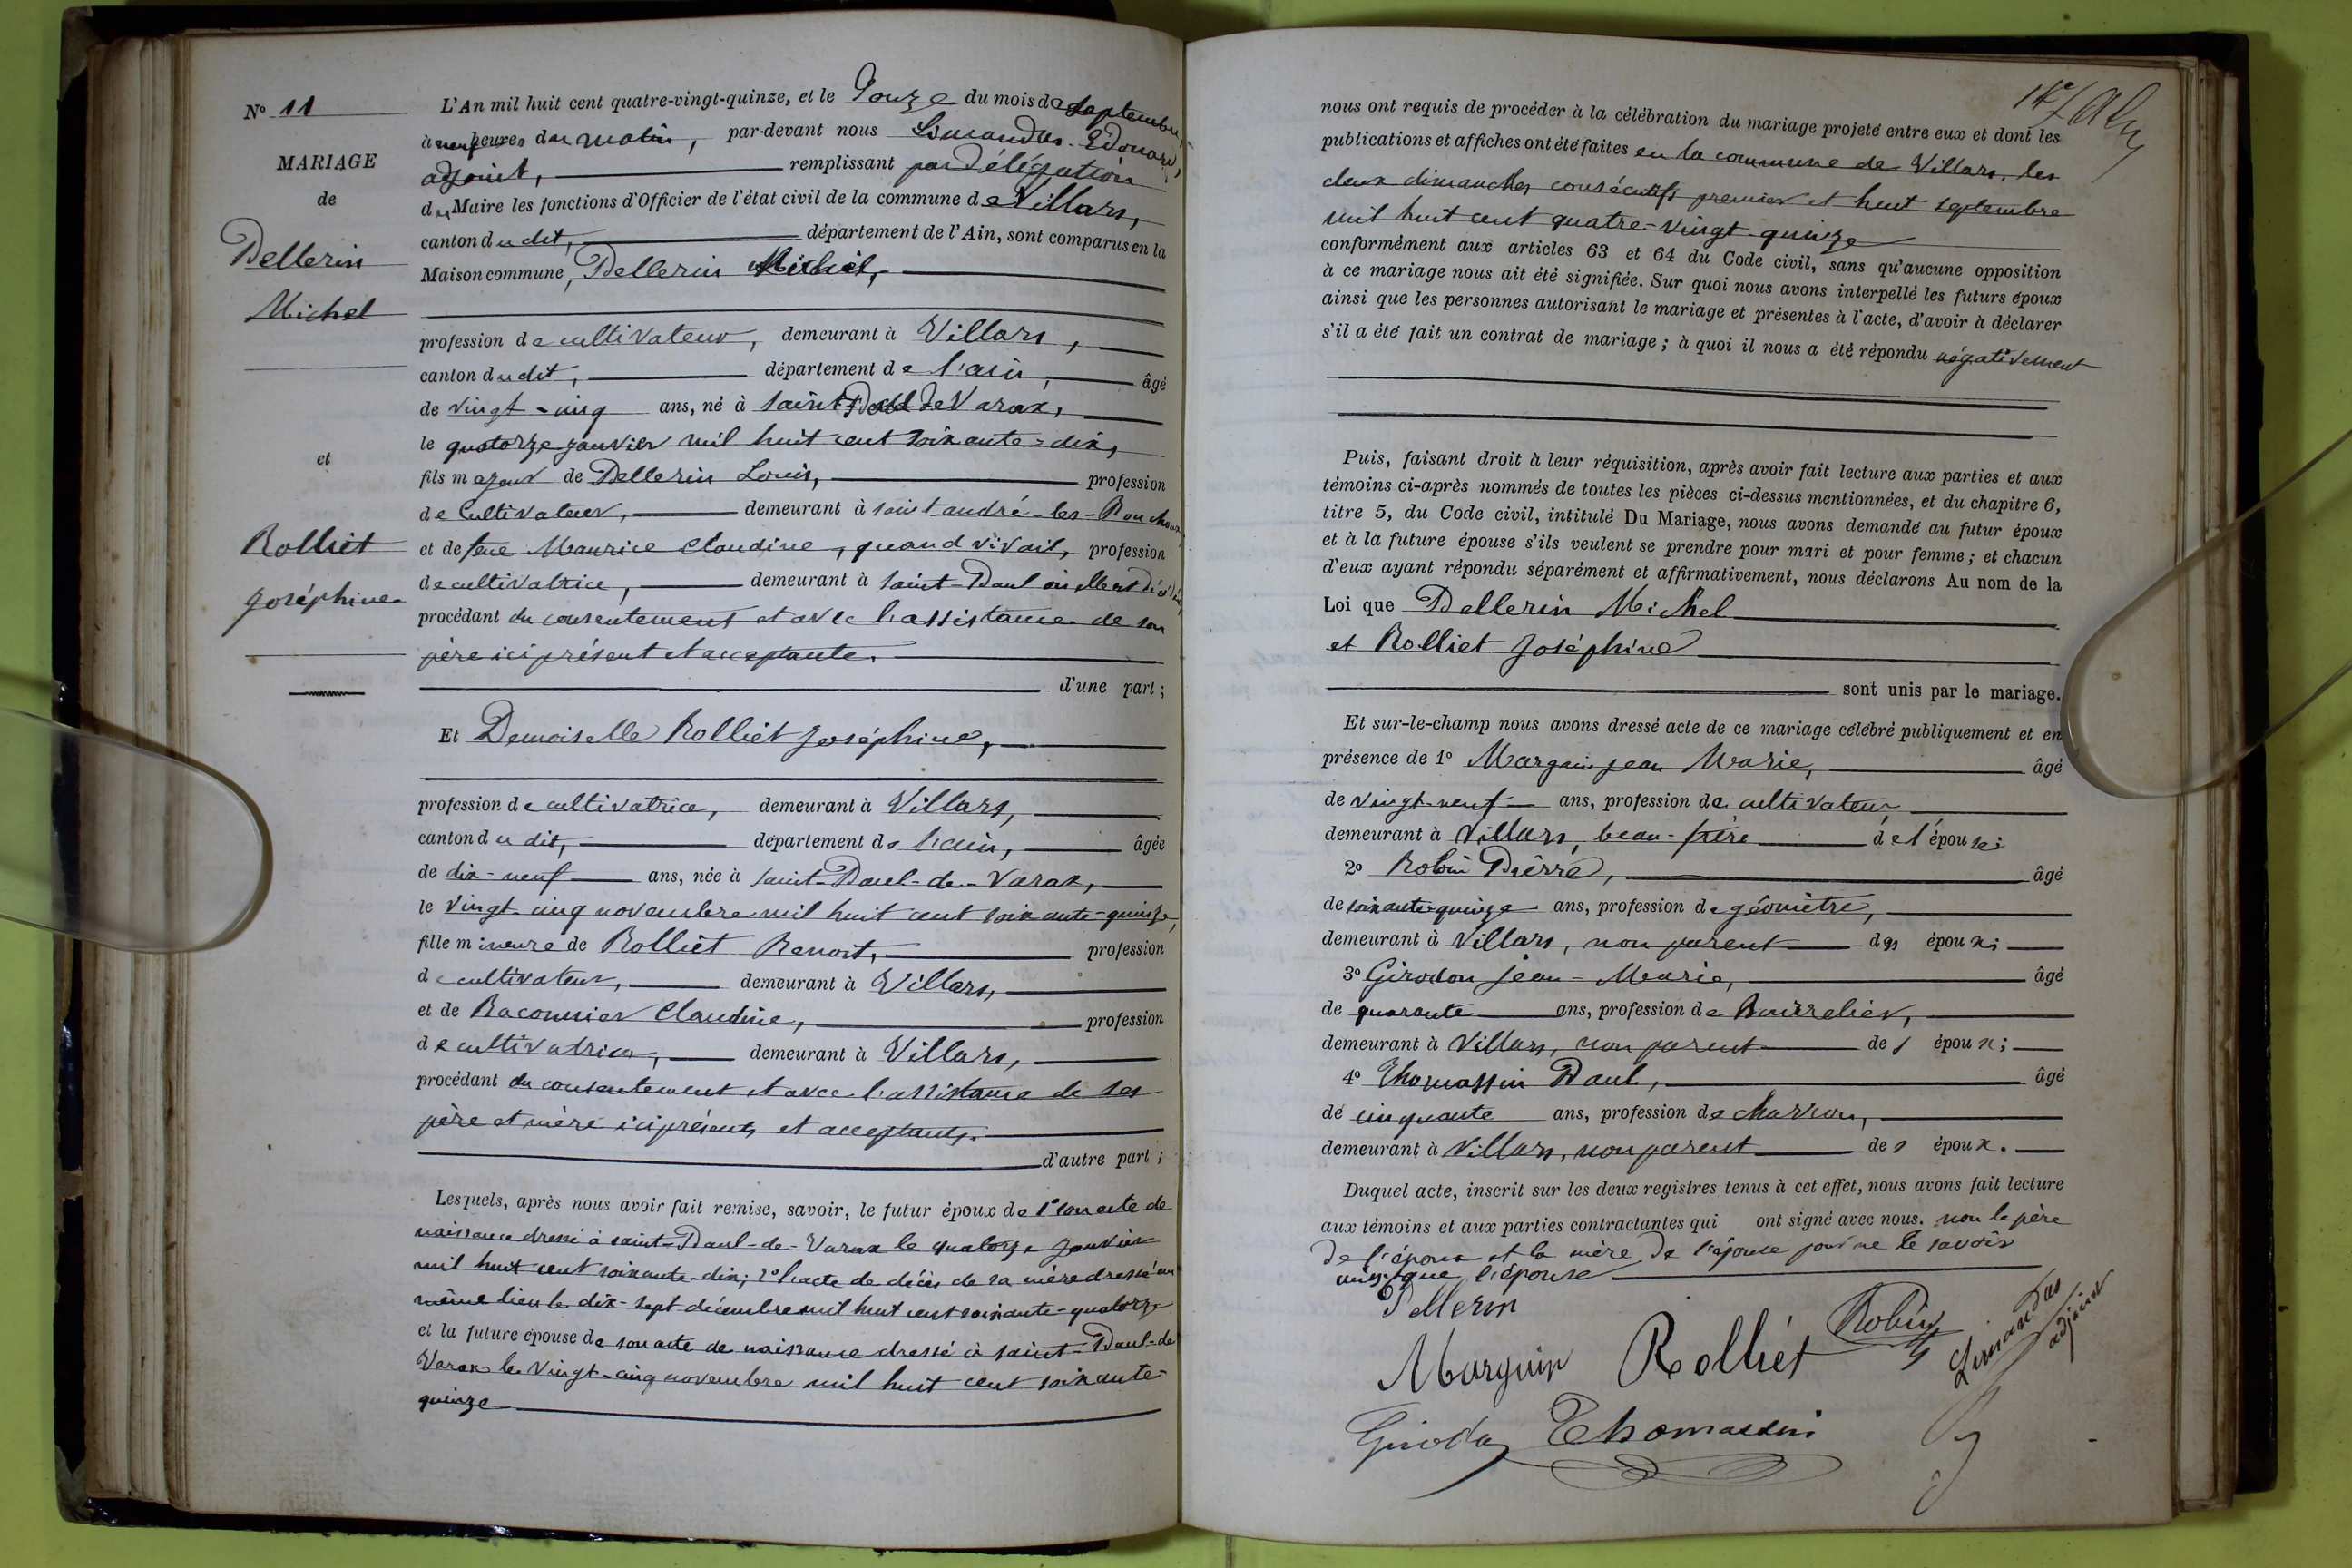 N° 11
MARIAGE
de
Pellerin
Michel
et
Rolliet
Joséphine
L'An mil huit cent quatre-vingt-quinze, et le Douze du mois de septembre,
à neuf heures du matin, par-devant nous Limandas Edouard,
adjoint, remplissant par délégation
du Maire les fonctions d'Officier de l'état civil de la commune de Villars,
canton du dit, département de l'Ain, sont comparus en la
Maison commune, Pellerin Michel,
profession de cultivateur, demeurant à Villars,
canton du dit, département de l'ain, âgé
de vingt-cinq ans, né à saint Paul de Varax,
le quatorze janvier mil huit cent soixante-dix,
fils majeur de Pellerin Louis, profession
de cultivateur, demeurant à saint andré-les-Bouchoux
et de feue Maurice Claudine, quand vivait, profession
de cultivatrice, demeurant à saint-Paul où elle est décédée,
procédant du consentement et avec l'assistance de son
père ici présent et acceptante.
d'une part;
Et Demoiselle Rolliet Joséphine,
profession de cultivatrice, demeurant à Villars,
canton du dit, département de l'ain, âgée
de dix-neuf ans, née à saint-Paul-de-Varax,
le vingt-cinq novembre mil huit cent soixante-quinze,
fille mineure de Rolliet Benoit, profession
de cultivateur, demeurant à Villars,
et de Raconnier Claudine, profession
de cultivatrice, demeurant à Villars,
procédant du consentement et avec l'assistance de ses
père et mère ici présents et acceptants.
d'autre part;
Lesquels, après nous avoir fait remise, savoir, le futur époux de 1° son acte de
naissance dressé à saint-Paul-de-Varax le quatorze janvier
mil huit cent soixante-dix; 2° l'acte de décès de sa mère dressé au
même lieu le dix-sept décembre mil huit cent soixante-quatorze
et la future épouse de son acte de naissance dressé à saint-Paul-de
Varax le vingt-cinq novembre mil huit cent soixante-
quinze
nous ont requis de procéder à la célébration du mariage projeté entre eux et dont les
publications et affiches ont été faites en la commune de Villars, les
deux dimanches consécutifs premier et huit septembre
mil huit cent quatre-vingt-quinze
conformément aux articles 63 et 64 du Code civil, sans qu'aucune opposition
à ce mariage nous ait été signifiée. Sur quoi nous avons interpellé les futurs époux
ainsi que les personnes autorisant le mariage et présentes à l'acte, d'avoir à déclarer
s'il a été fait un contrat de mariage; à quoi il nous a été répondu négativement
Puis, faisant droit à leur réquisition, après avoir fait lecture aux parties et aux
témoins ci-après nommés de toutes les pièces ci-dessus mentionnées, et du chapitre 6,
titre 5, du Code civil, intitulé Du Mariage, nous avons demandé au futur époux
et à la future épouse s'ils veulent se prendre pour mari et pour femme; et chacun
d'eux ayant répondu séparément et affirmativement, nous déclarons Au nom de la
Loi que Pellerin Michel
et Rolliet Joséphine
sont unis par le mariage.
Et sur-le-champ nous avons dressé acte de ce mariage célébré publiquement et en
présence de 1° Marguin jean Marie, âgé
de vingt-neuf ans, profession de cultivateur,
demeurant à Villars, beau-frère de l'épouse;
2° Robin Pierre, âgé
de soixante-quinze ans, profession de géomètre,
demeurant à Villars, non parent des époux;
3° Girodon jean-Marie, âgé
de quarante ans, profession de Bourrelier,
demeurant à Villars, non parent des époux;
4° Thomassin Paul, âgé
de cinquante ans, profession de charron,
demeurant à Villars, non parent des époux.
Duquel acte, inscrit sur les deux registres tenus à cet effet, nous avons fait lecture
aux témoins et aux parties contractantes qui ont signé avec nous. non le père
de l'époux et la mère de l'épouse pour ne le savoir
ainsi que l'épouse
Pellerin
Marguin Rolliet Robin
Limandas
adjoint
Girodon Thomassin